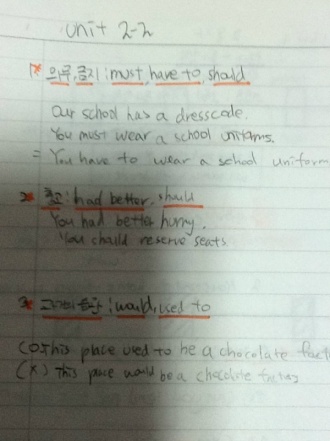 unit 2-2
1* 의무, 금지 : must, have to, should
Our school has a dresscode.
You must wear a school uniforms.
= You have to wear a school uniform
2* 충고 : had better, should
You had better hurry.
You chould reserve seats
3* 과거의 습관 : would, used to
(O) This place used to be a chocolate fact
(X) This place would be a chocolate factory